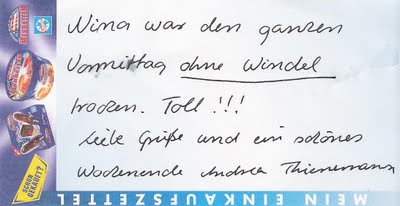 Nina war den ganzen
Vormittag ohne Windel
trocken. Toll!!!
Liebe Grüße und ein schönes
Wochenende Andrea Thienemann
SCHON
GEKAUFT?
MEIN EINKAUFSZETTEL